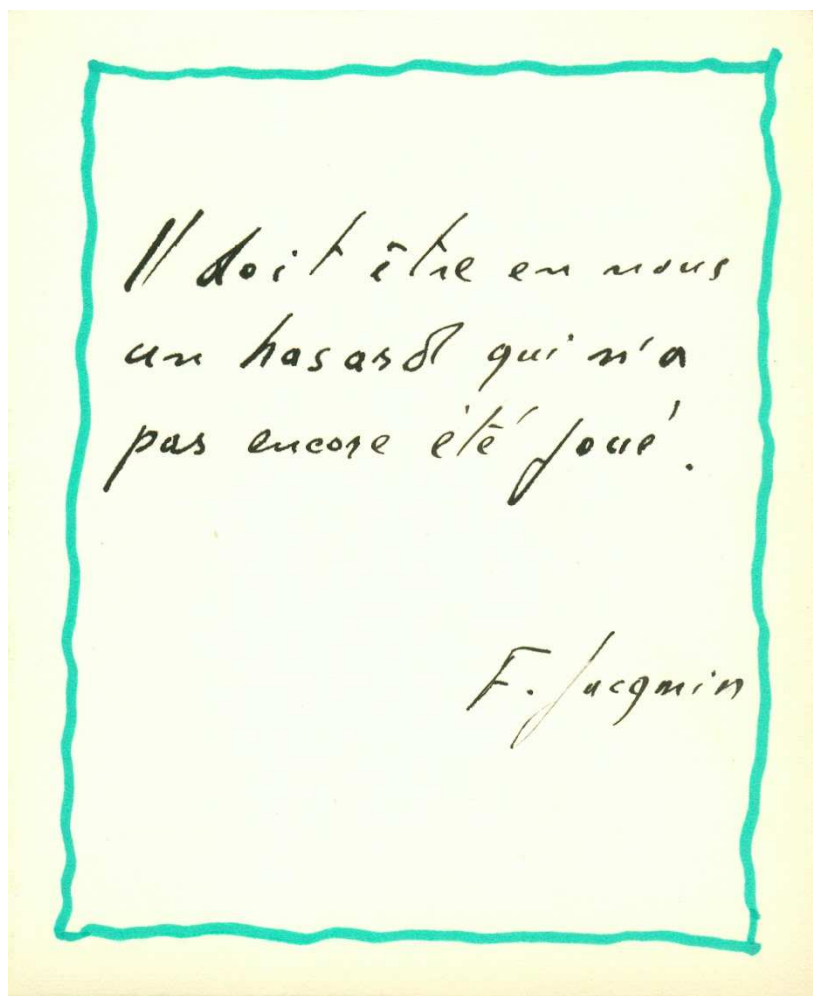 Il doit être en nous
un hasard qui n'a
pas encore été joué.
F. Jacqmin